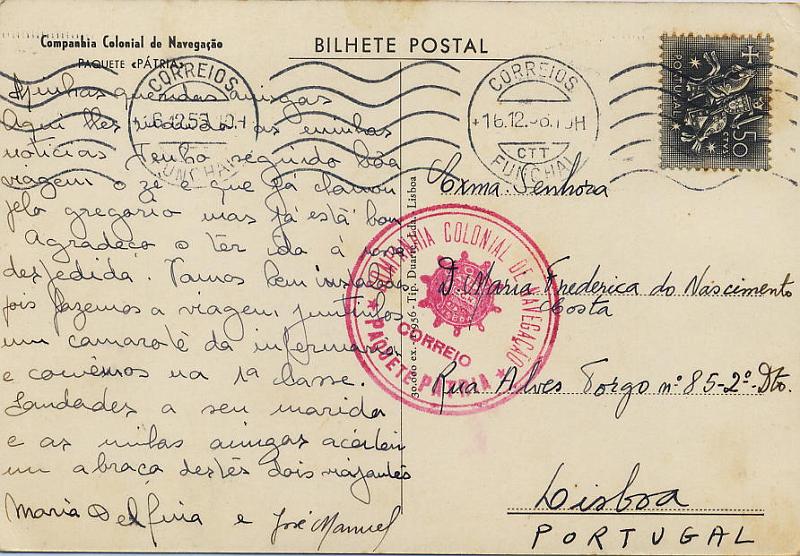 Companhia Colonial de Navegação
PAQUETE «PÁTRIA»
BILHETE POSTAL
CORREIOS
16.12.56.10H
FUNCHAL
CORREIOS
+16.12.56.10H
CTT
FUNCHAL
PORTUGAL
$50
Minhas queridas amigas
Aqui lhes as minhas
notícias Tenho seguido bôa
viagem o Zé é que já chamou
pelo gregório mas já está bom
Agradeço o ter ida á nossa
despedida. Vamos bem instalados
pois fazemos a viagem juntinhos
um camarote da enfermaria
e comêmos na 1ª classe.
Saudades a seu marido
e as minhas amigas aceitem
um abraço destes dois viajantes
Maria Delfina e José Manuel
30.000 ex. - 1956 - Tip. Duarte, Lda. Lisboa
COMPANHIA COLONIAL DE NAVEGAÇÃO
CORREIO
PAQUETE PÁTRIA
Exma. Senhora
D. Maria Frederica do Nascimento
Costa
Rua Alves Torgo nº 85-2º-Dto.
Lisboa
PORTUGAL